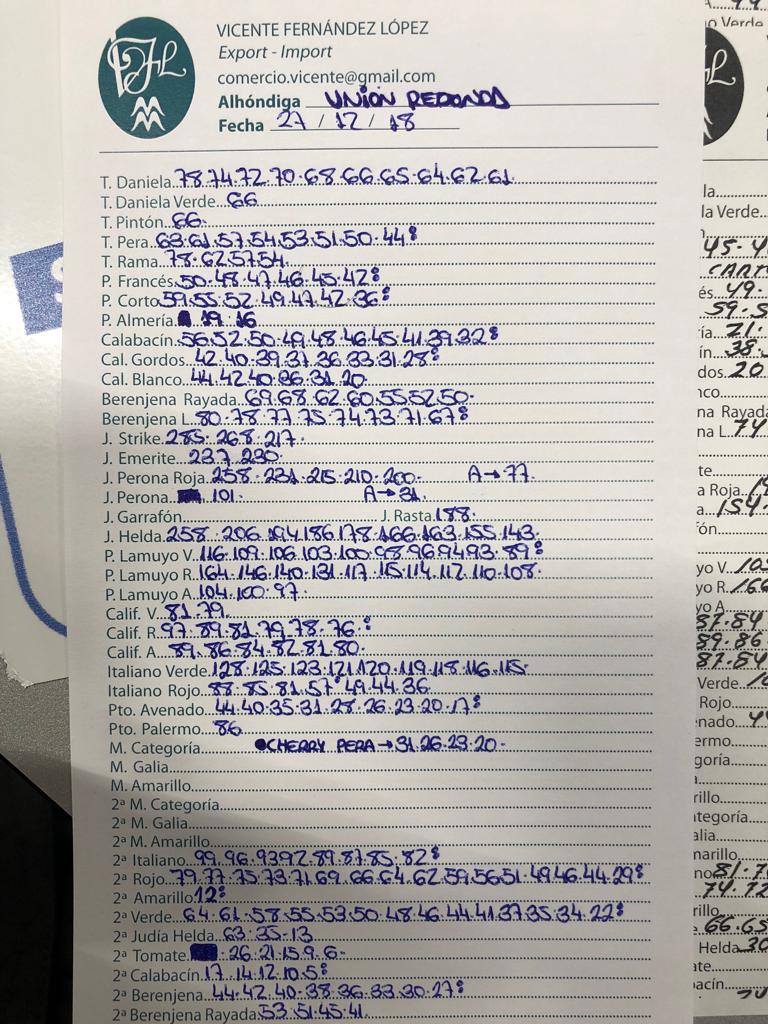 VICENTE FERNÁNDEZ LÓPEZ
Export - Import
comercio.vicente@gmail.com
Alhóndiga UNION REDONDA
Fecha 27 / 12 / 18
T. Daniela 78.74.72.70.68.66.65.64.62.61
T. Daniela Verde 66
T. Pintón 66.
T. Pera 63.61.57.54.53.51.50.44
T. Rama 78.62.57.54
P. Francés 50.48.47.46.45.42
P. Corto 59.55.52.49.47.42.36
P. Almería 19.16
Calabacín 56.52.50.49.48.46.45.41.39.32
Cal. Gordos 42.40.39.37.36.33.31.28
Cal. Blanco 44.42.40.36.31.20
Berenjena Rayada 69.68.62.60.55.52.50
Berenjena L. 80.78.77.75.74.73.71.67
J. Strike 285.268.217
J. Emerite 237.230
J. Perona Roja 258.231.215.210.200. A→77.
J. Perona 101. A→31.
J. Garrafón J. Rasta 188.
J. Helda 258.206.194.186.178.166.163.155.143
P. Lamuyo V. 116.109.106.103.100.98.96.94.93.89
P. Lamuyo R. 164.146.140.131.117.115.114.112.110.108
P. Lamuyo A. 104.100.97
Calif. V. 81.79.
Calif. R. 97.89.81.79.78.76.
Calif. A. 89.86.84.82.81.80
Italiano Verde 128.125.123.121.120.119.118.116.115
Italiano Rojo 88.85.81.57.49.44.36
Pto. Avenado 44.40.35.31.28.26.23.20.17
Pto. Palermo 86
M. Categoría CHERRY PERA→31.26.23.20.
M. Galia
M. Amarillo
2ª M. Categoría
2ª M. Galia
2ª M. Amarillo
2ª Italiano 99.96.93.92.89.87.85.82
2ª Rojo 79.77.75.73.71.69.66.64.62.59.56.51.49.46.44.29
2ª Amarillo 12
2ª Verde 64.61.58.55.53.50.48.46.44.41.37.35.34.22
2ª Judía Helda 63.35.13
2ª Tomate 26.21.15.9.6.
2ª Calabacín 17.14.12.10.5
2ª Berenjena 44.42.40.38.36.33.30.27
2ª Berenjena Rayada 53.51.45.41.